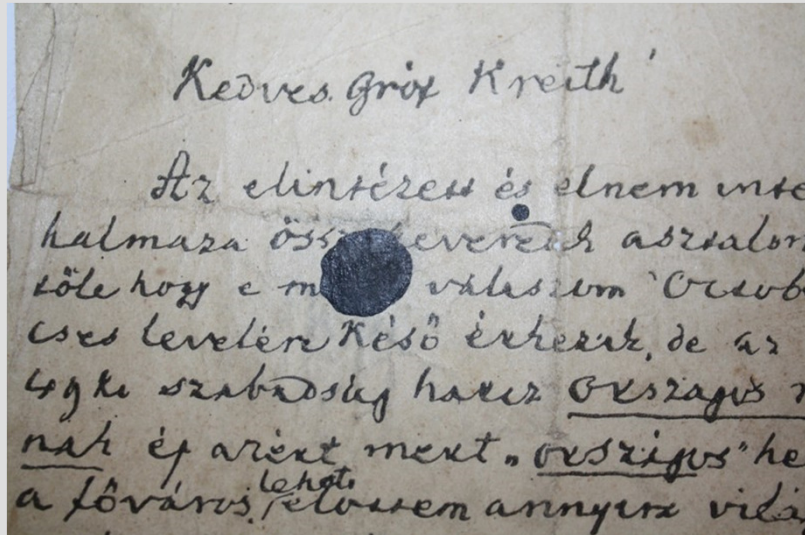 Kedves Gróf Kreith
Az elintézett és elnem inté
halmaza össz keveredik asztalon
tőle hogy e m válaszom Octob
cses levelére Késő érkezik, de az
szabadság harcz országos
nak ép azért mert „országos" he
lehet
a főváros, előttem annyira vilá